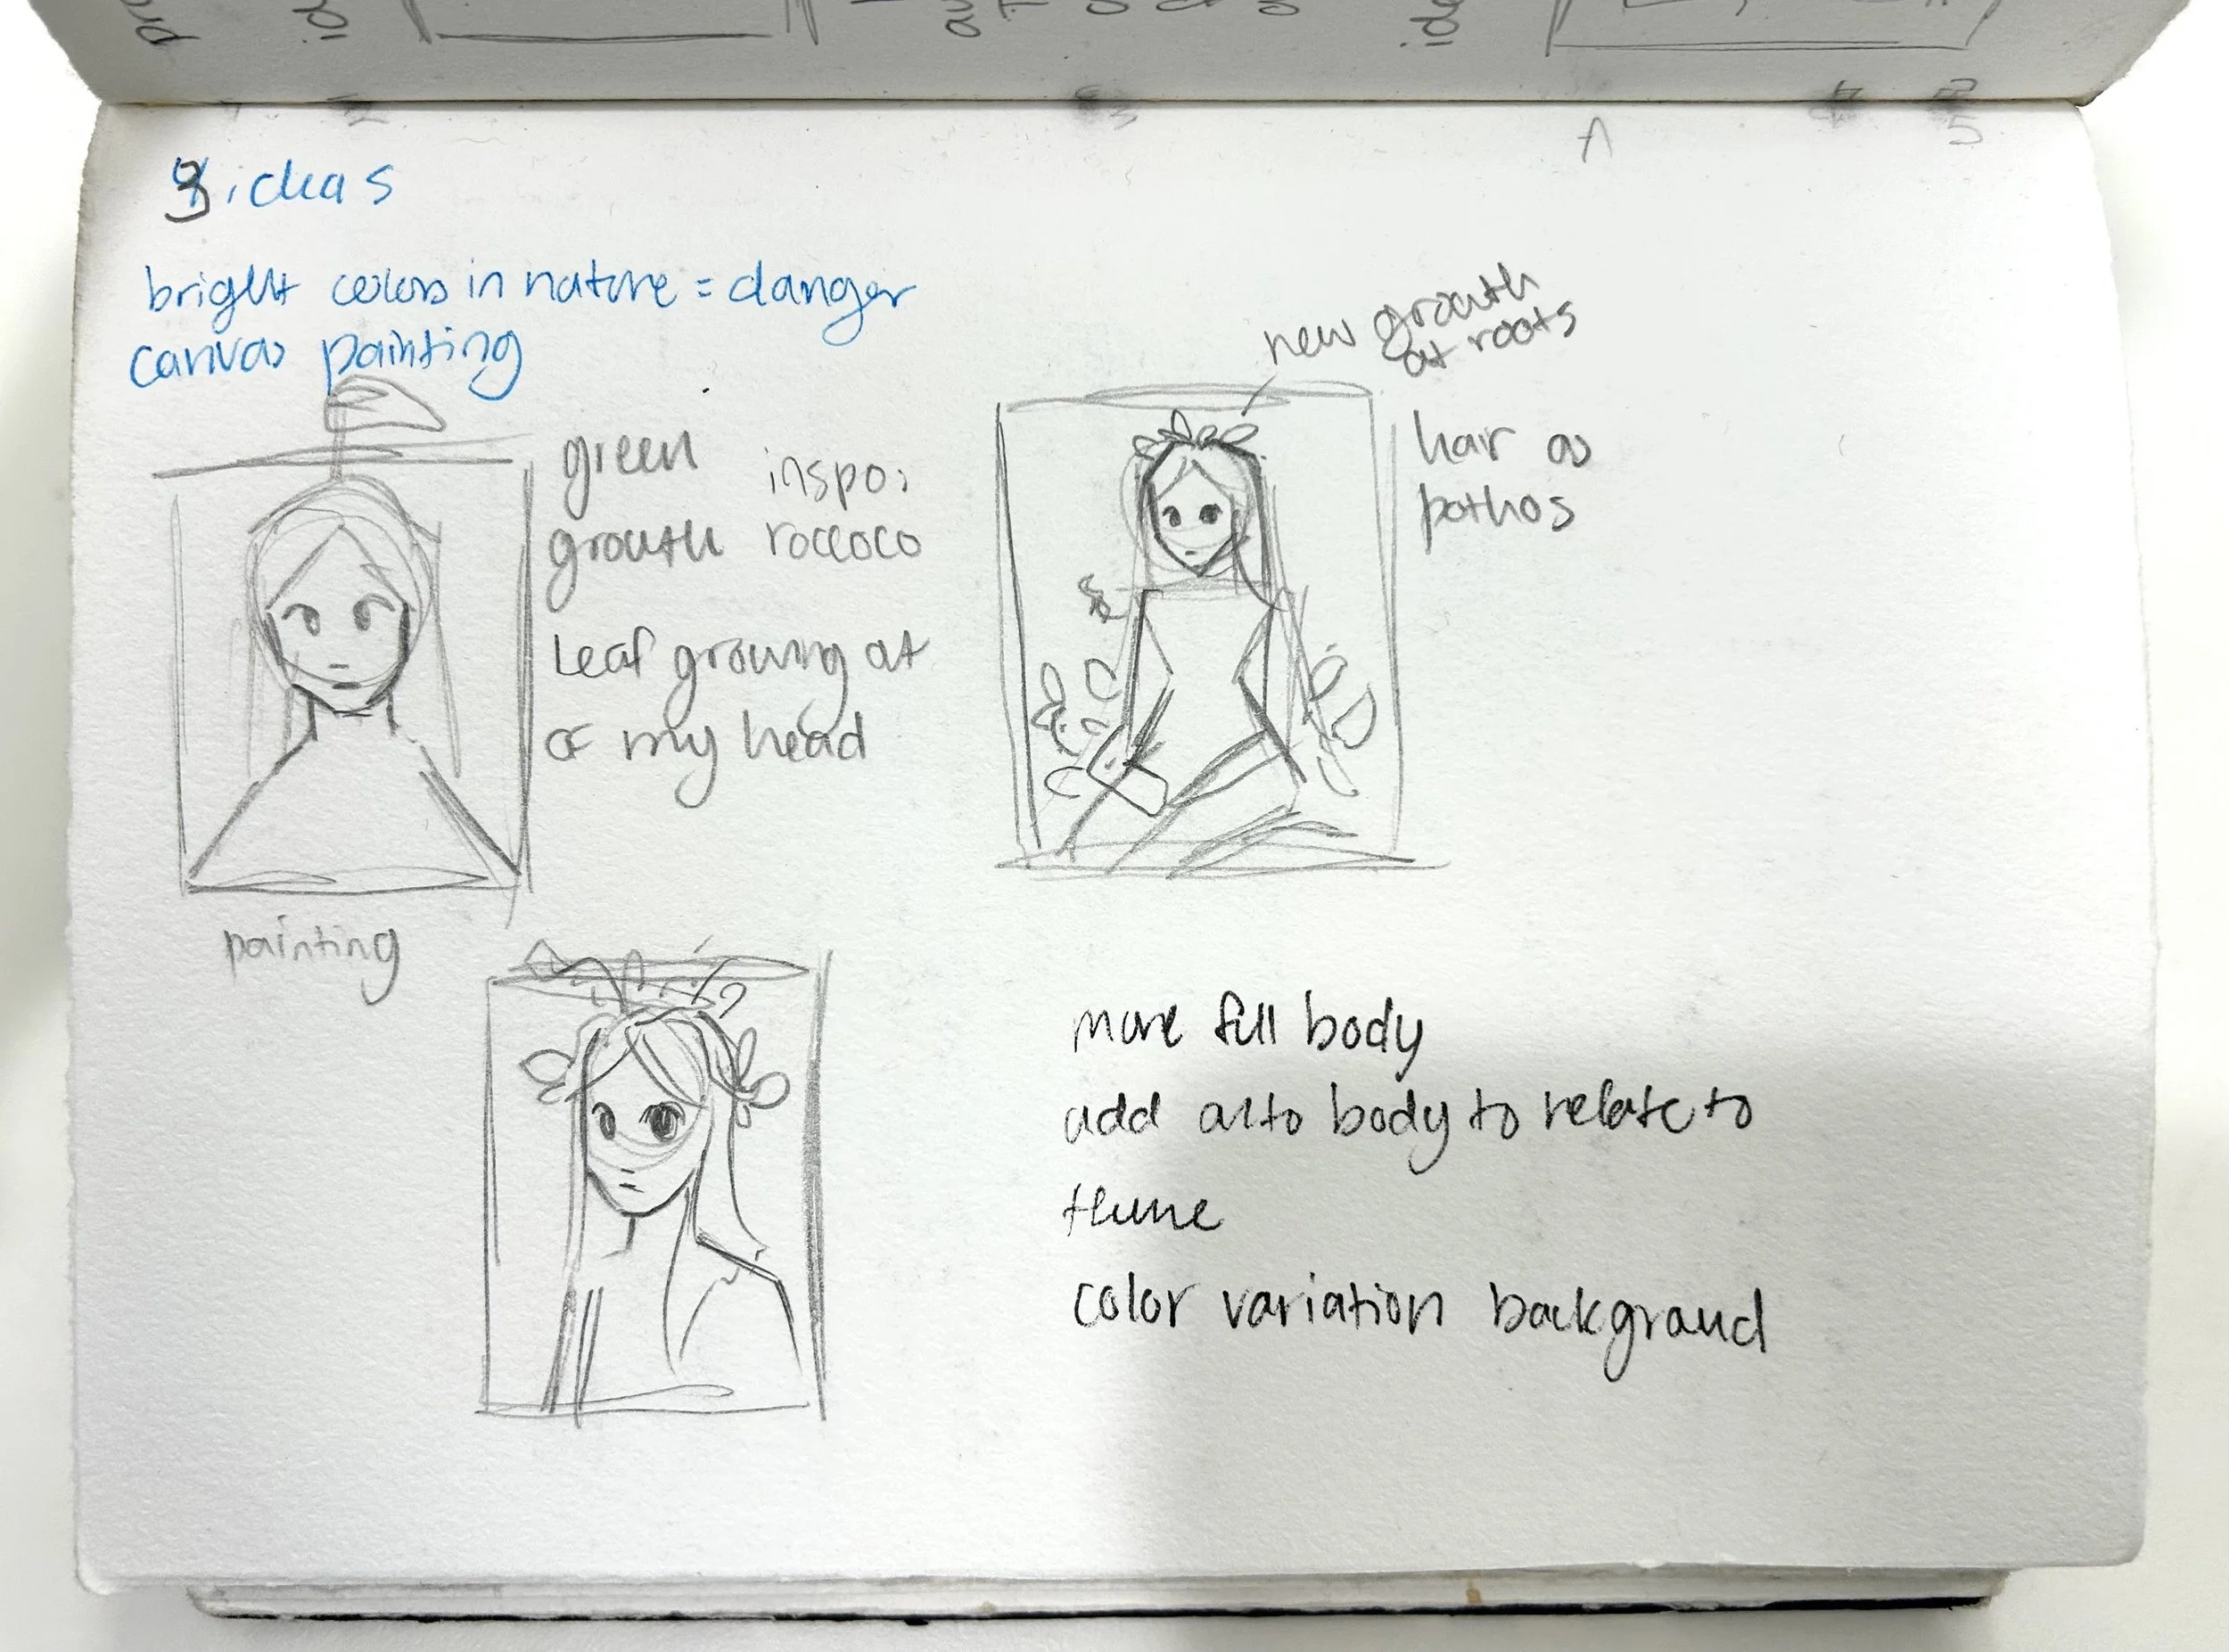 3 ideas
bright colors in nature = danger
canvas painting
green
growth
inspo:
roccoco
Leaf growing at
of my head
painting
new growth
at roots
hair as
pothos
more full body
add on to body to relate to
theme
color variation background